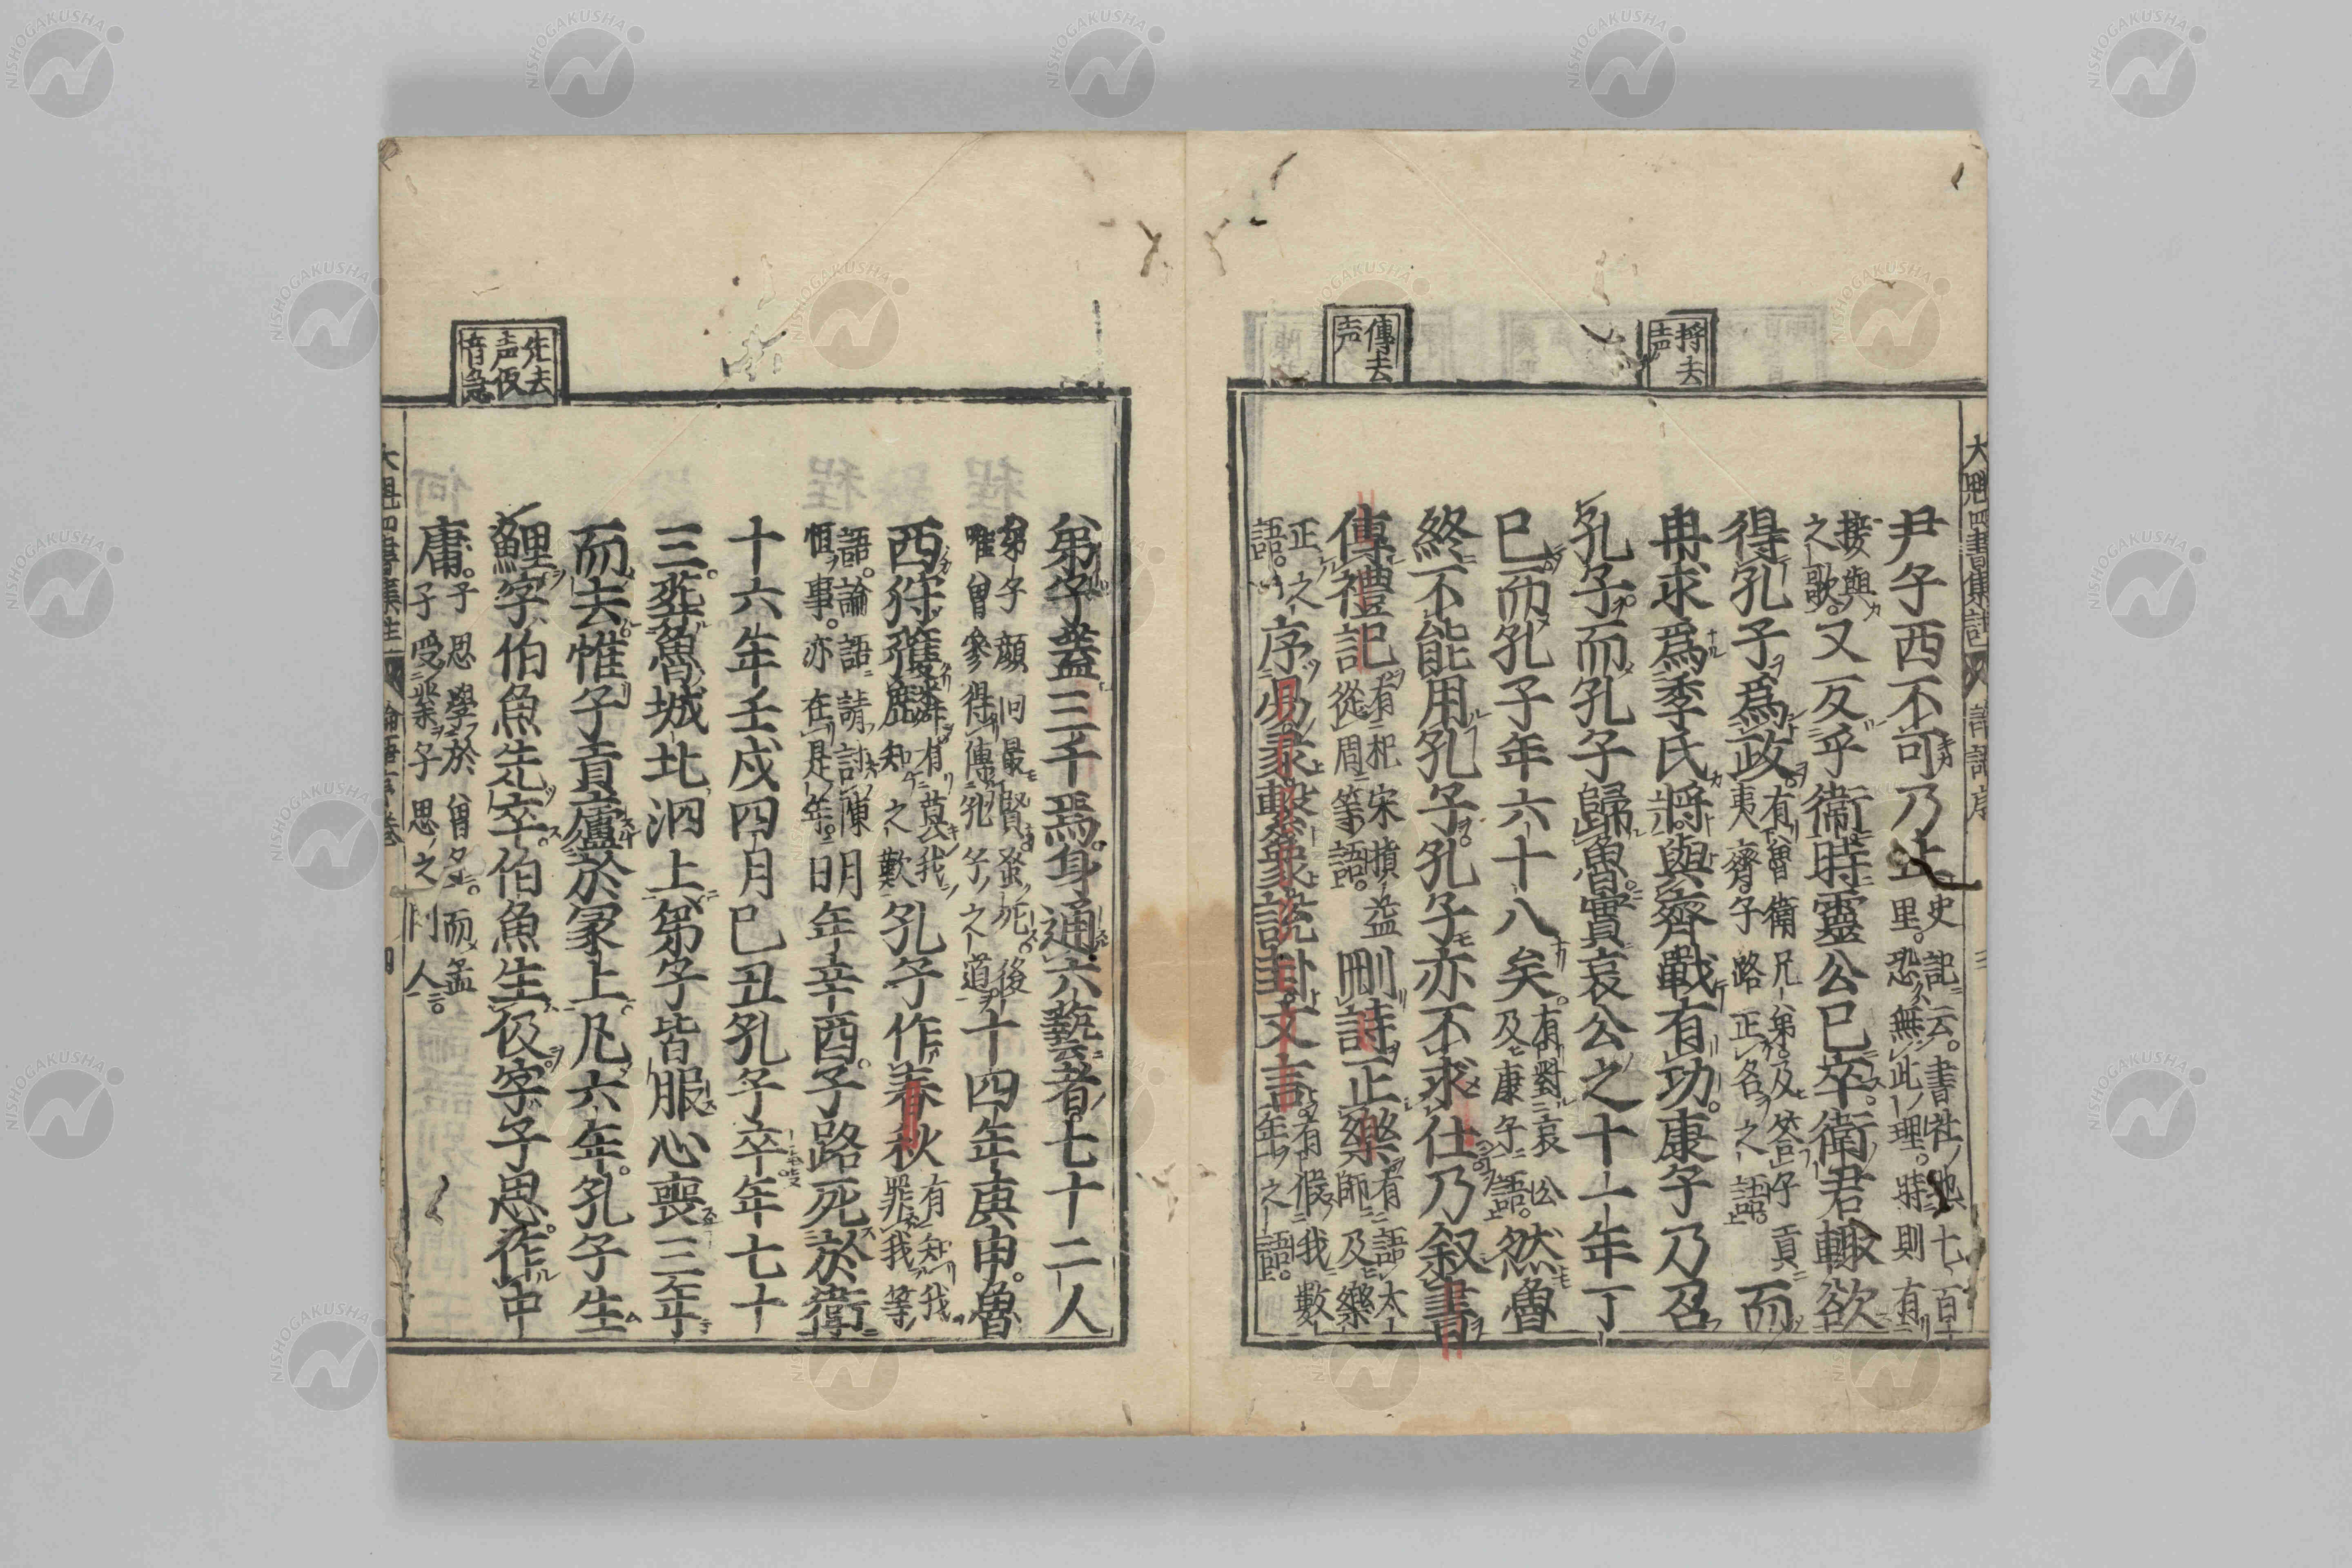 将去
声
傳去
声
尹子西不可乃止 史記云書社地七百里恐無此理時則有
接輿之歌 又反乎衛時靈公已卒衛君輒欲
得孔子爲政 有魯衛兄弟及答子貢夷齊子路正名之語 而
冉求爲季氏將與齊戰有功康子乃召
孔子而孔子歸魯實哀公之十一年丁
巳而孔子年六十八矣 有對哀公及康子語 然魯
終不能用孔子孔子亦不求仕乃叙書
傳禮記 有杞宋損益從周等語 刪詩正樂 有語太師及樂
正之語 序易彖繫象說卦文言 有假我數年之語
大魁四書集註 論語序
弟子蓋三千焉身通六藝者七十二人
弟子顔回最賢蚤死後唯曾參得傳孔子之道 十四年庚申魯
西狩獲麟 有莫我知之歎 孔子作春秋 有知我罪我等
語論語請討陳恒事亦在是年 明年辛酉子路死於衛
十六年壬戌四月己丑孔子卒年七十
三葬魯城北泗上弟子皆服心喪三年
而去惟子貢廬於冢上凡六年孔子生
鯉字伯魚先卒伯魚生伋字子思作中
庸 子思學於曾子而孟子受業子思之門人
先去
声伋
音急
NISHOGAKUSHA